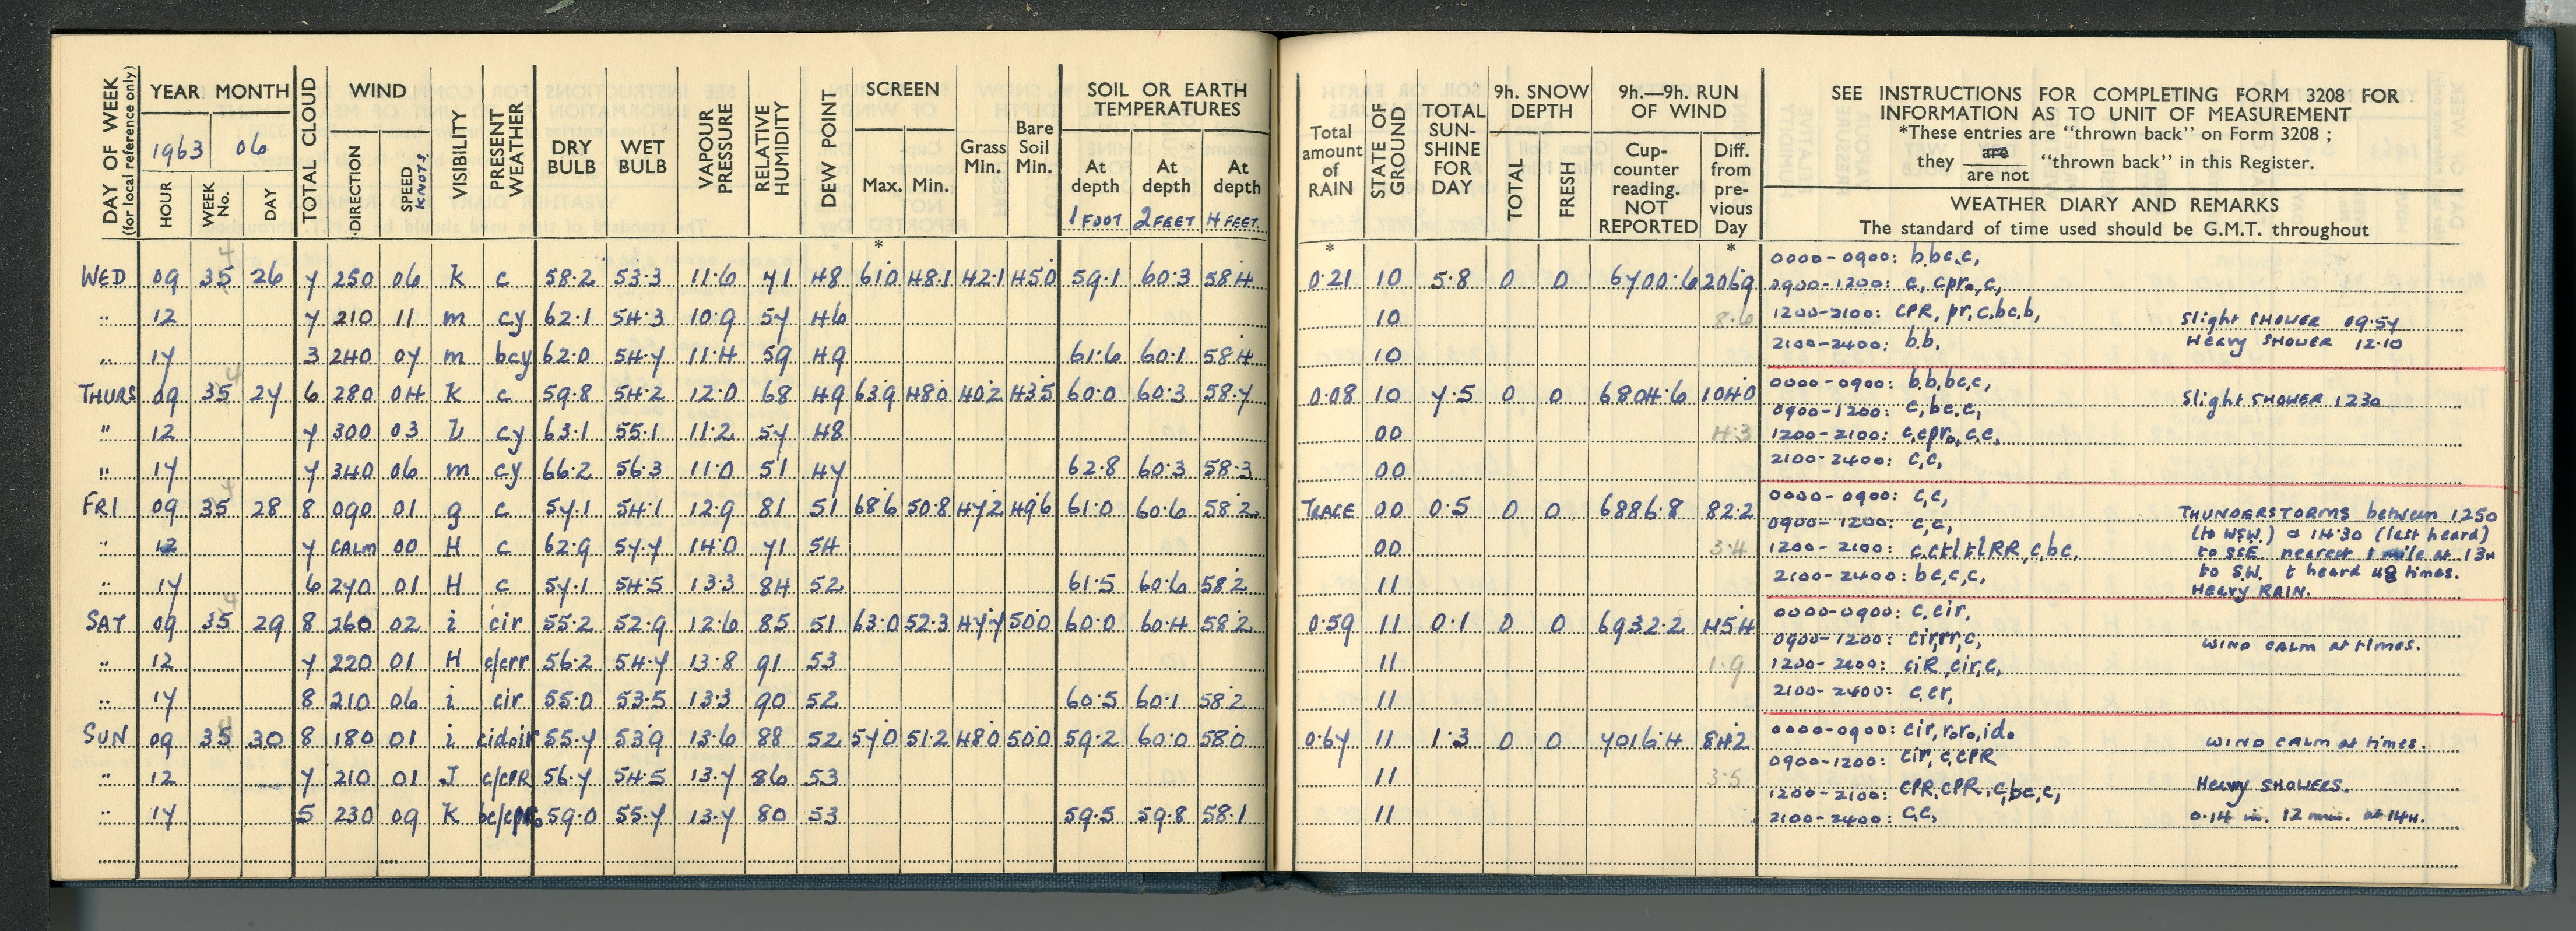 DAY OF WEEK (for local reference only)
YEAR MONTH
1963 06
HOUR WEEK No. DAY
TOTAL CLOUD
WIND
DIRECTION SPEED KNOTS
VISIBILITY
PRESENT WEATHER
DRY BULB
WET BULB
VAPOUR PRESSURE
RELATIVE HUMIDITY
DEW POINT
SCREEN
Max. Min.
Grass Min.
Bare Soil Min.
SOIL OR EARTH TEMPERATURES
At depth At depth At depth
1 FOOT 2 FEET 4 FEET
*
WED 09 35 4 26 7 250 06 K c 58.2 53.3 11.6 71 48 61.0 48.1 42.1 45.0 59.1 60.3 58.4
" 12 7 210 11 m cy 62.1 54.3 10.9 57 46
" 17 3 240 07 m bcy 62.0 54.7 11.4 59 49 61.6 60.1 58.4
THURS 09 35 4 27 6 280 04 K c 59.8 54.2 12.0 68 49 63.9 48.0 40.2 43.5 60.0 60.3 58.7
" 12 7 300 03 L cy 63.1 55.1 11.2 57 48
" 17 7 340 06 m cy 66.2 56.3 11.0 51 47 62.8 60.3 58.3
FRI 09 35 4 28 8 090 01 g c 57.1 54.1 12.9 81 51 68.6 50.8 47.2 49.6 61.0 60.6 58.2
" 12 7 CALM 00 H c 62.9 57.7 14.0 71 54
" 17 6 270 01 H c 57.1 54.5 13.3 84 52 61.5 60.6 58.2
SAT 09 35 4 29 8 260 02 i cir 55.2 52.9 12.6 85 51 63.0 52.3 47.7 50.0 60.0 60.4 58.2
" 12 7 220 01 H c/crr 56.2 54.7 13.8 91 53
" 17 8 210 06 i cir 55.0 53.5 13.3 90 52 60.5 60.1 58.2
SUN 09 35 4 30 8 180 01 i cidoir 55.7 53.9 13.6 88 52 57.0 51.2 48.0 50.0 59.2 60.0 58.0
" 12 7 210 01 J c/CPR 56.7 54.5 13.7 86 53
" 17 5 230 09 K bc/cpro 59.0 55.7 13.7 80 53 59.5 59.8 58.1
Total amount of RAIN
STATE OF GROUND
TOTAL SUN-SHINE FOR DAY
9h. SNOW DEPTH
TOTAL FRESH
9h.—9h. RUN OF WIND
Cup-counter reading. NOT REPORTED
Diff. from pre-vious Day
SEE INSTRUCTIONS FOR COMPLETING FORM 3208 FOR
INFORMATION AS TO UNIT OF MEASUREMENT
*These entries are "thrown back" on Form 3208 ;
they are / are not "thrown back" in this Register.
WEATHER DIARY AND REMARKS
The standard of time used should be G.M.T. throughout
* *
0.21 10 5.8 0 0 6700.6 206.9
10 8.6
10
0000-0900: b,bc,c,
0900-1200: c, cpro,c,
1200-2100: CPR, pr,c,bc,b,
2100-2400: b,b,
Slight SHOWER 09.57
Heavy SHOWER 12.10
0.08 10 7.5 0 0 6804.6 104.0
00 4.3
00
0000-0900: b,b,bc,c,
0900-1200: c,bc,c,
1200-2100: c,cpro,c,c,
2100-2400: c,c,
Slight SHOWER 1230
TRACE 00 0.5 0 0 6886.8 82.2
00 3.4
11
0000-0900: c,c,
0900-1200: c,c,
1200-2100: c,ctltlRR,c,bc,
2100-2400: bc,c,c,
THUNDERSTORMS between 1250
(to WSW.) & 14.30 (last heard)
to SSE nearest 1 mile at 13H
to S.W. t heard 48 times.
Heavy RAIN.
0.59 11 0.1 0 0 6932.2 45.4
11 1.9
11
0000-0900: c,cir,
0900-1200: cirrr,c,
1200-2100: ciR,cir,c,
2100-2400: c,cr,
WIND CALM at times.
0.67 11 1.3 0 0 7016.4 84.2
11 3.5
11
0000-0900: cir,roro,ido
0900-1200: cir, c,CPR
1200-2100: CPR,CPR,c,bc,c,
2100-2400: c,c,
WIND CALM at times.
Heavy SHOWERS.
0.14 in. 12 min. at 14H.